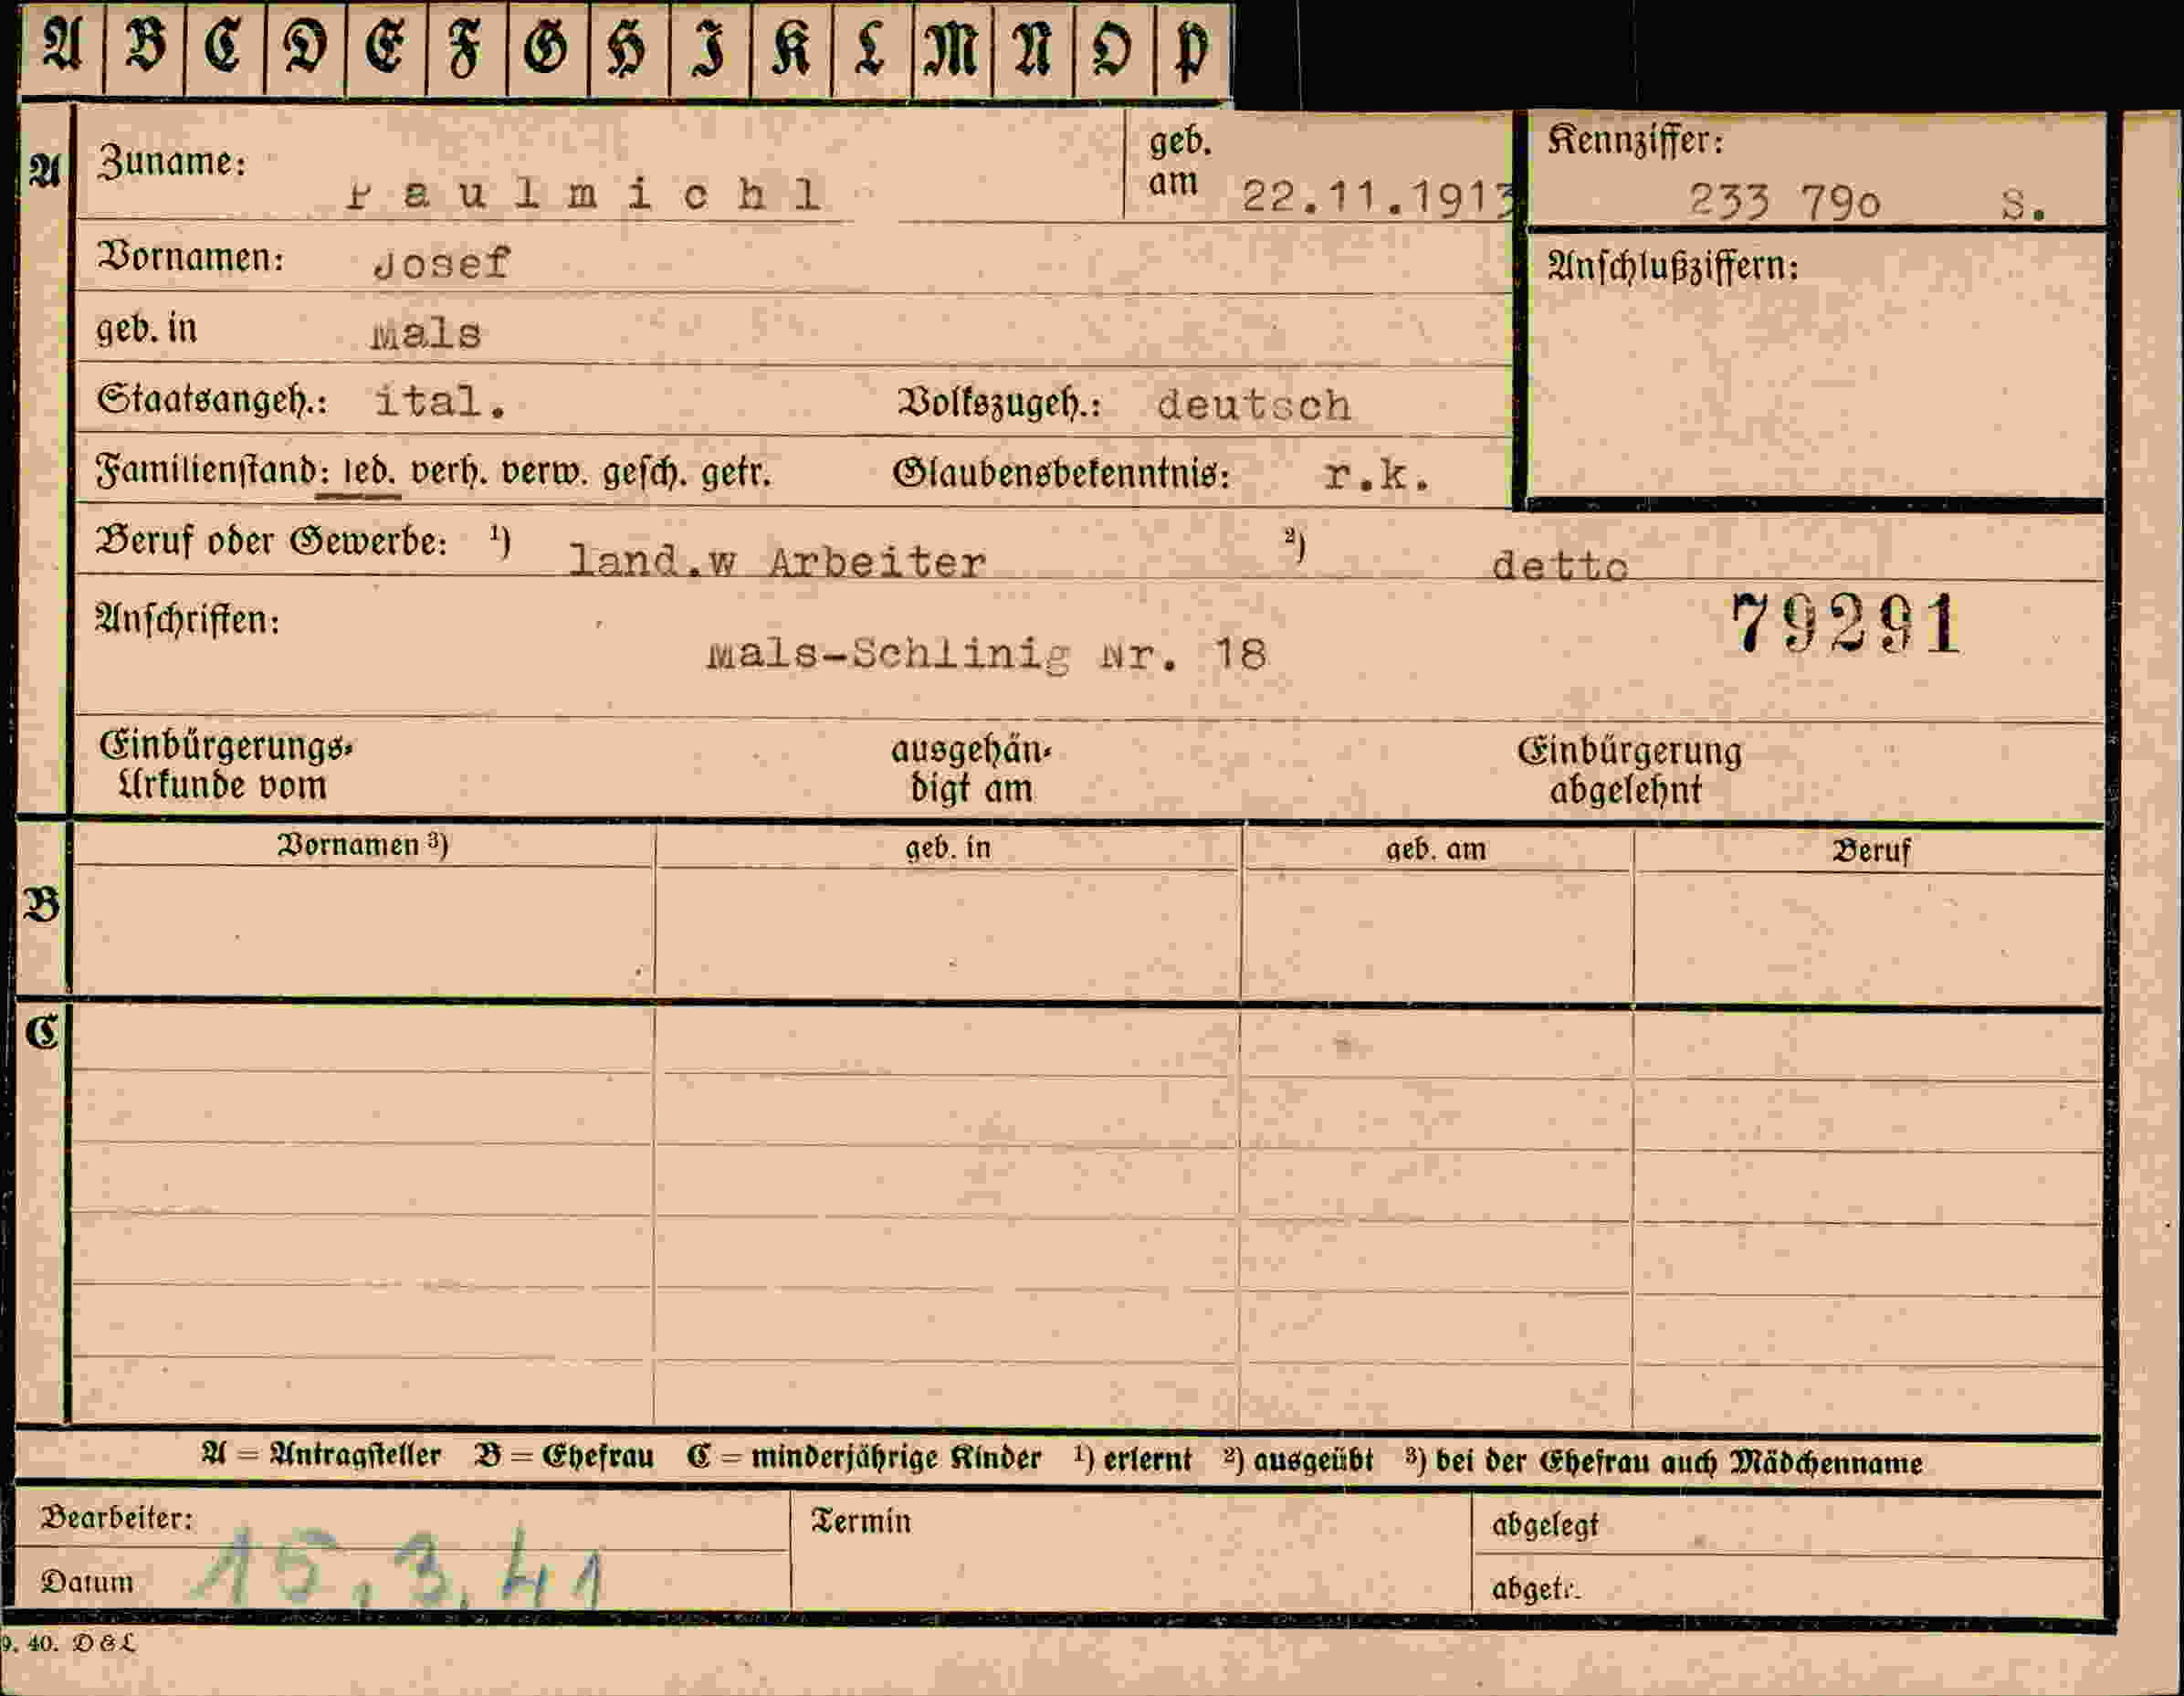 A B C D E F G H I K L M N O P
A Zuname: Paulmichl geb. am 22.11.1913 Kennziffer: 233 790 S.
Vornamen: Josef Anschlußziffern:
geb. in Mals
Staatsangeh.: ital. Volkszugeh.: deutsch
Familienstand: led. verh. verw. gesch. getr. Glaubensbekenntnis: r.k.
Beruf oder Gewerbe: ¹) land.w Arbeiter ²) detto
Anschriften: 79291
Mals-Schlinig Nr. 18
Einbürgerungs- ausgehän- Einbürgerung
Urkunde vom digt am abgelehnt
Vornamen ³) geb. in geb. am Beruf
B
C
A = Antragsteller B = Ehefrau C = minderjährige Kinder ¹) erlernt ²) ausgeübt ³) bei der Ehefrau auch Mädchenname
Bearbeiter: Termin abgelegt
Datum 15.3.41 abgetr.
9. 40. D&L